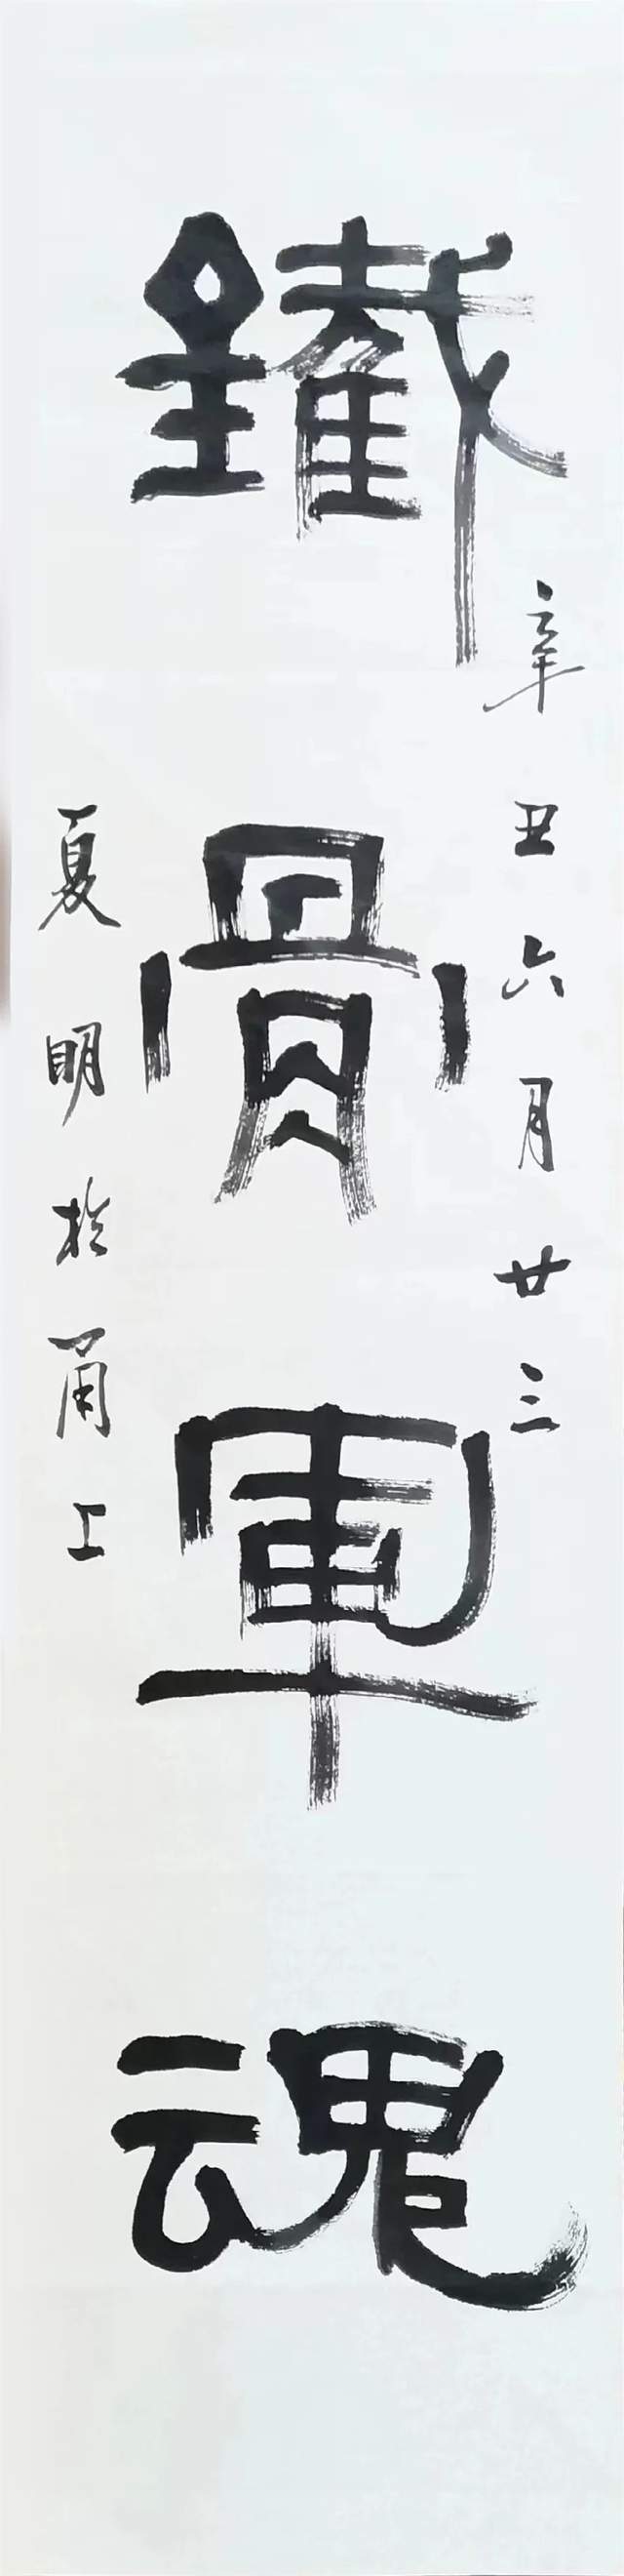 鐵骨軍魂
辛丑六月廿三
夏明於甬上